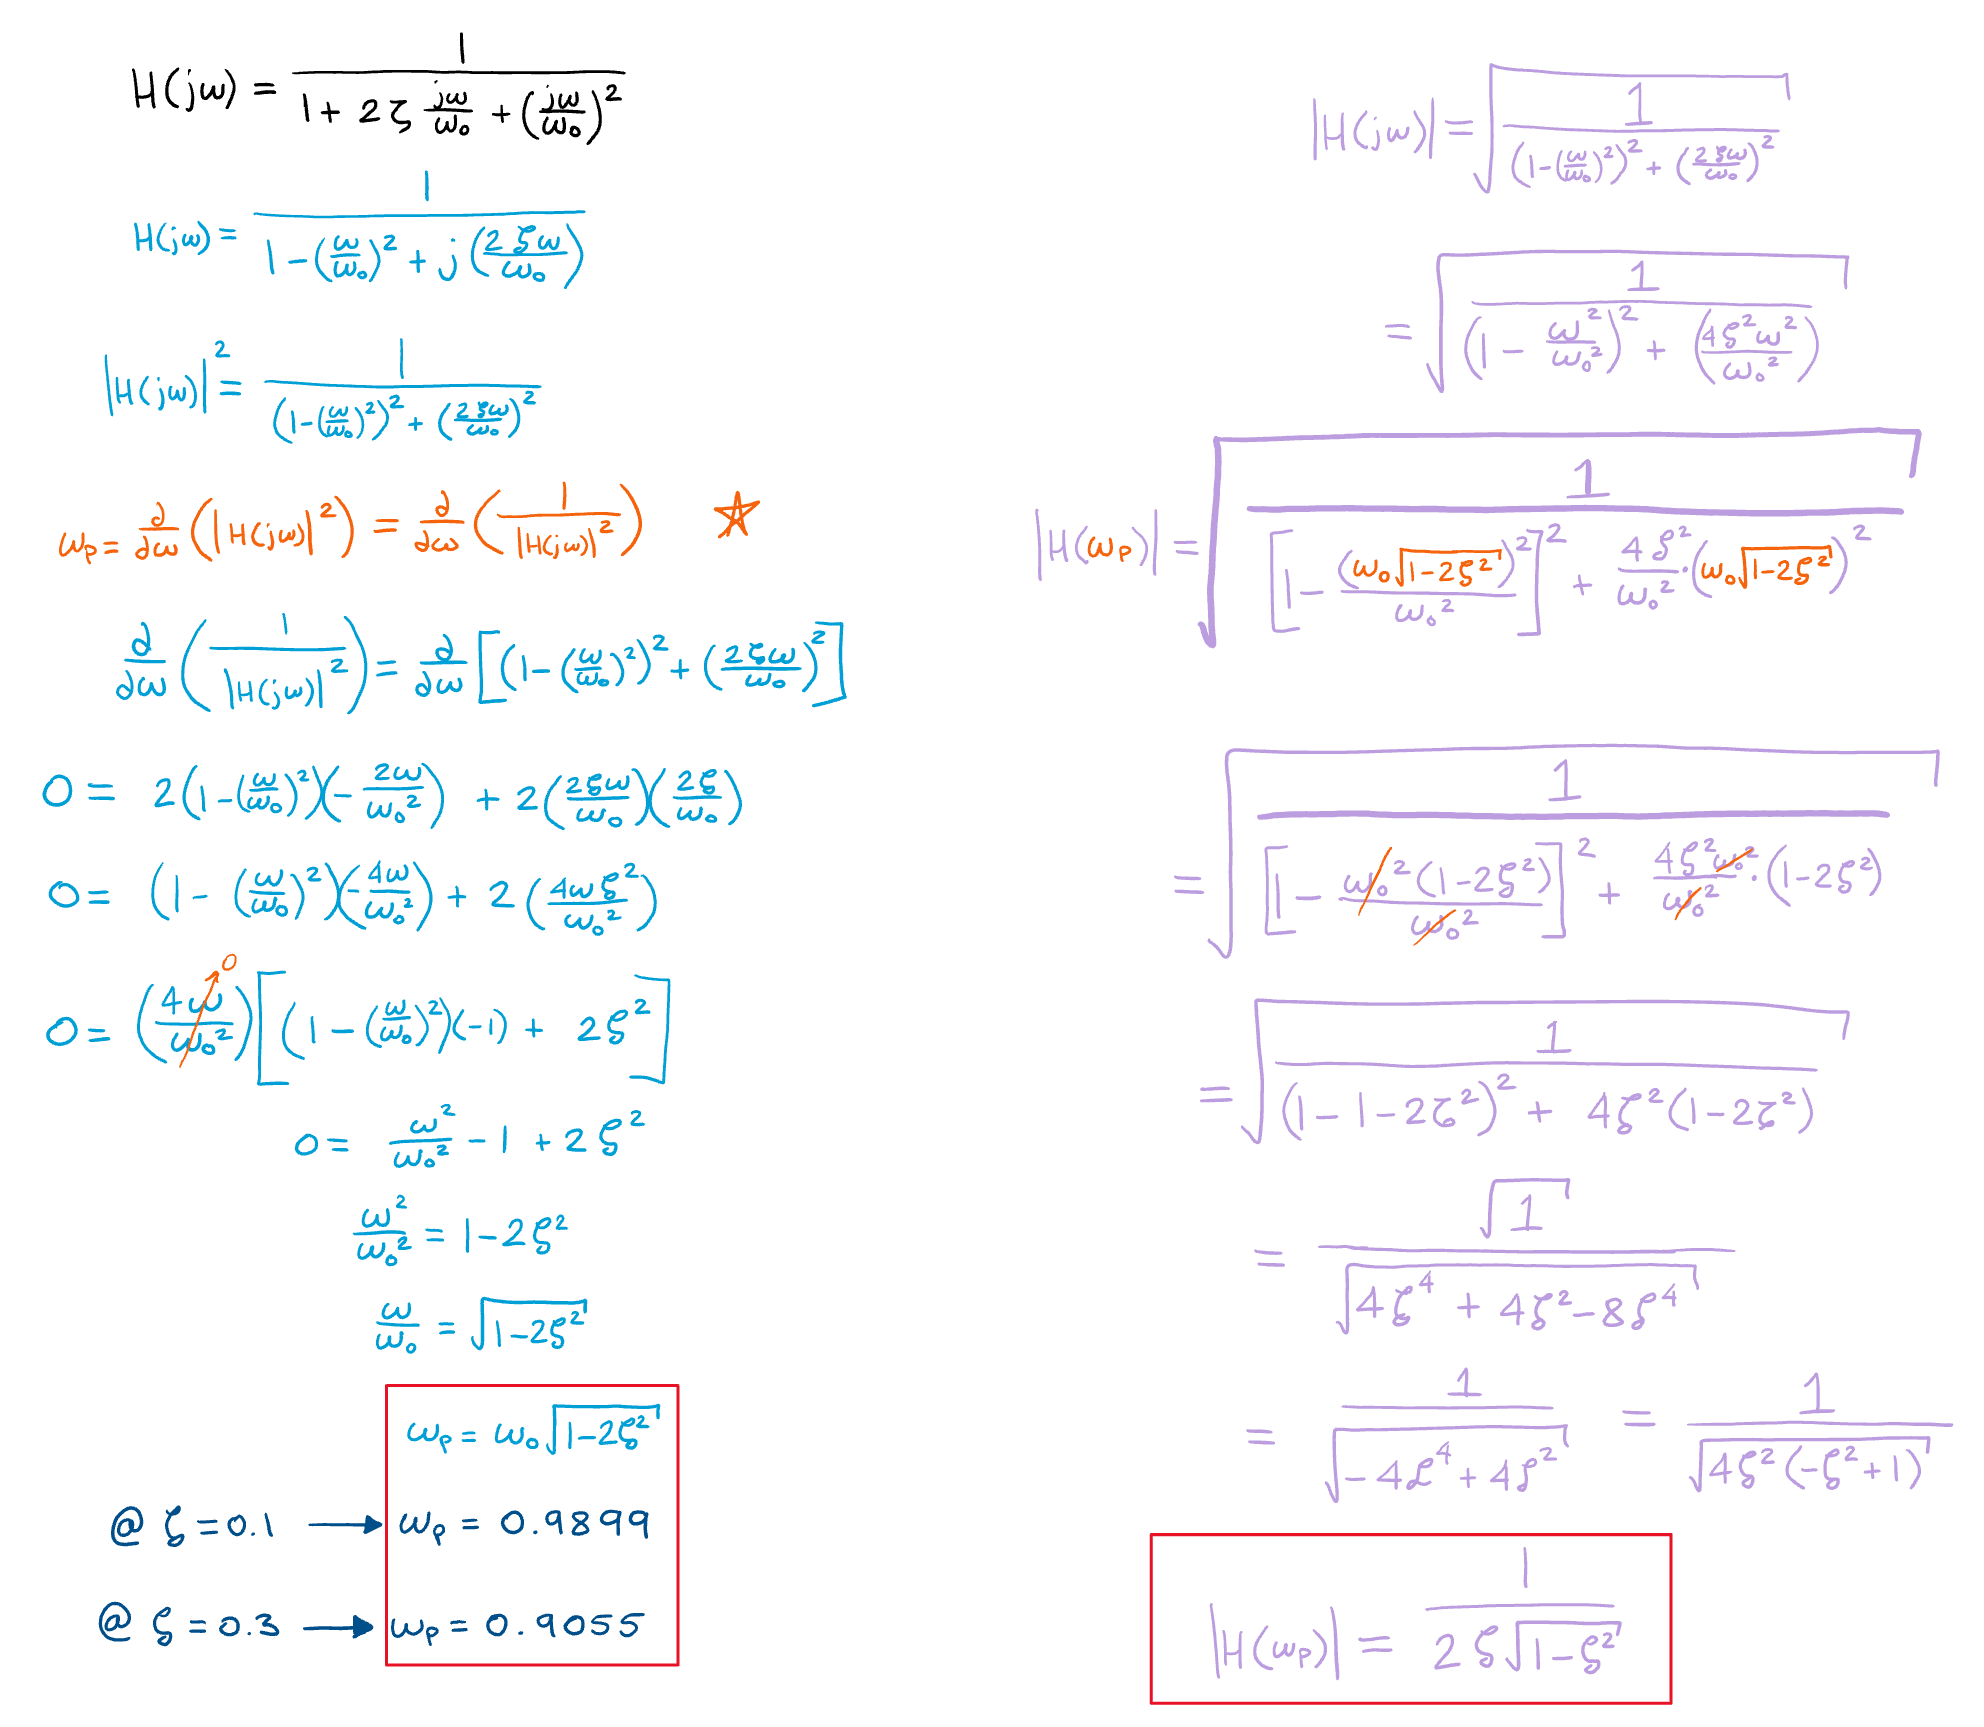 H(jω) = 1 / (1 + 2ζ jω/ω₀ + (jω/ω₀)²)
H(jω) = 1 / (1 − (ω/ω₀)² + j(2ζω/ω₀))
|H(jω)|² = 1 / ((1−(ω/ω₀)²)² + (2ζω/ω₀)²)
ωp = ∂/∂ω (|H(jω)|²) = ∂/∂ω (1/|H(jω)|²) ☆
∂/∂ω (1/|H(jω)|²) = ∂/∂ω [(1−(ω/ω₀)²)² + (2ζω/ω₀)²]
0 = 2(1−(ω/ω₀)²)(−2ω/ω₀²) + 2(2ζω/ω₀)(2ζ/ω₀)
0 = (1−(ω/ω₀)²)(−4ω/ω₀²) + 2(4ωζ²/ω₀²)
0 = (4ω/ω₀²)→0 [(1−(ω/ω₀)²)(−1) + 2ζ²]
0 = ω²/ω₀² − 1 + 2ζ²
ω²/ω₀² = 1−2ζ²
ω/ω₀ = √(1−2ζ²)
ωp = ω₀√(1−2ζ²)
@ ζ = 0.1 → ωp = 0.9899
@ ζ = 0.3 → ωp = 0.9055
|H(jω)| = √(1 / ((1−(ω/ω₀)²)² + (2ζω/ω₀)²))
= √(1 / ((1 − ω²/ω₀²)² + (4ζ²ω²/ω₀²)))
|H(ωp)| = √(1 / ([1 − (ω₀√(1−2ζ²))²/ω₀²]² + 4ζ²/ω₀² · (ω₀√(1−2ζ²))²))
= √(1 / ([1 − ω₀²(1−2ζ²)/ω₀²]² + 4ζ²ω₀²/ω₀² · (1−2ζ²)))
= √(1 / ((1−1−2ζ²)² + 4ζ²(1−2ζ²)))
= √1 / √(4ζ⁴ + 4ζ² − 8ζ⁴)
= 1 / √(−4ζ⁴ + 4ζ²) = 1 / √(4ζ²(−ζ²+1))
|H(ωp)| = 1 / (2ζ√(1−ζ²))